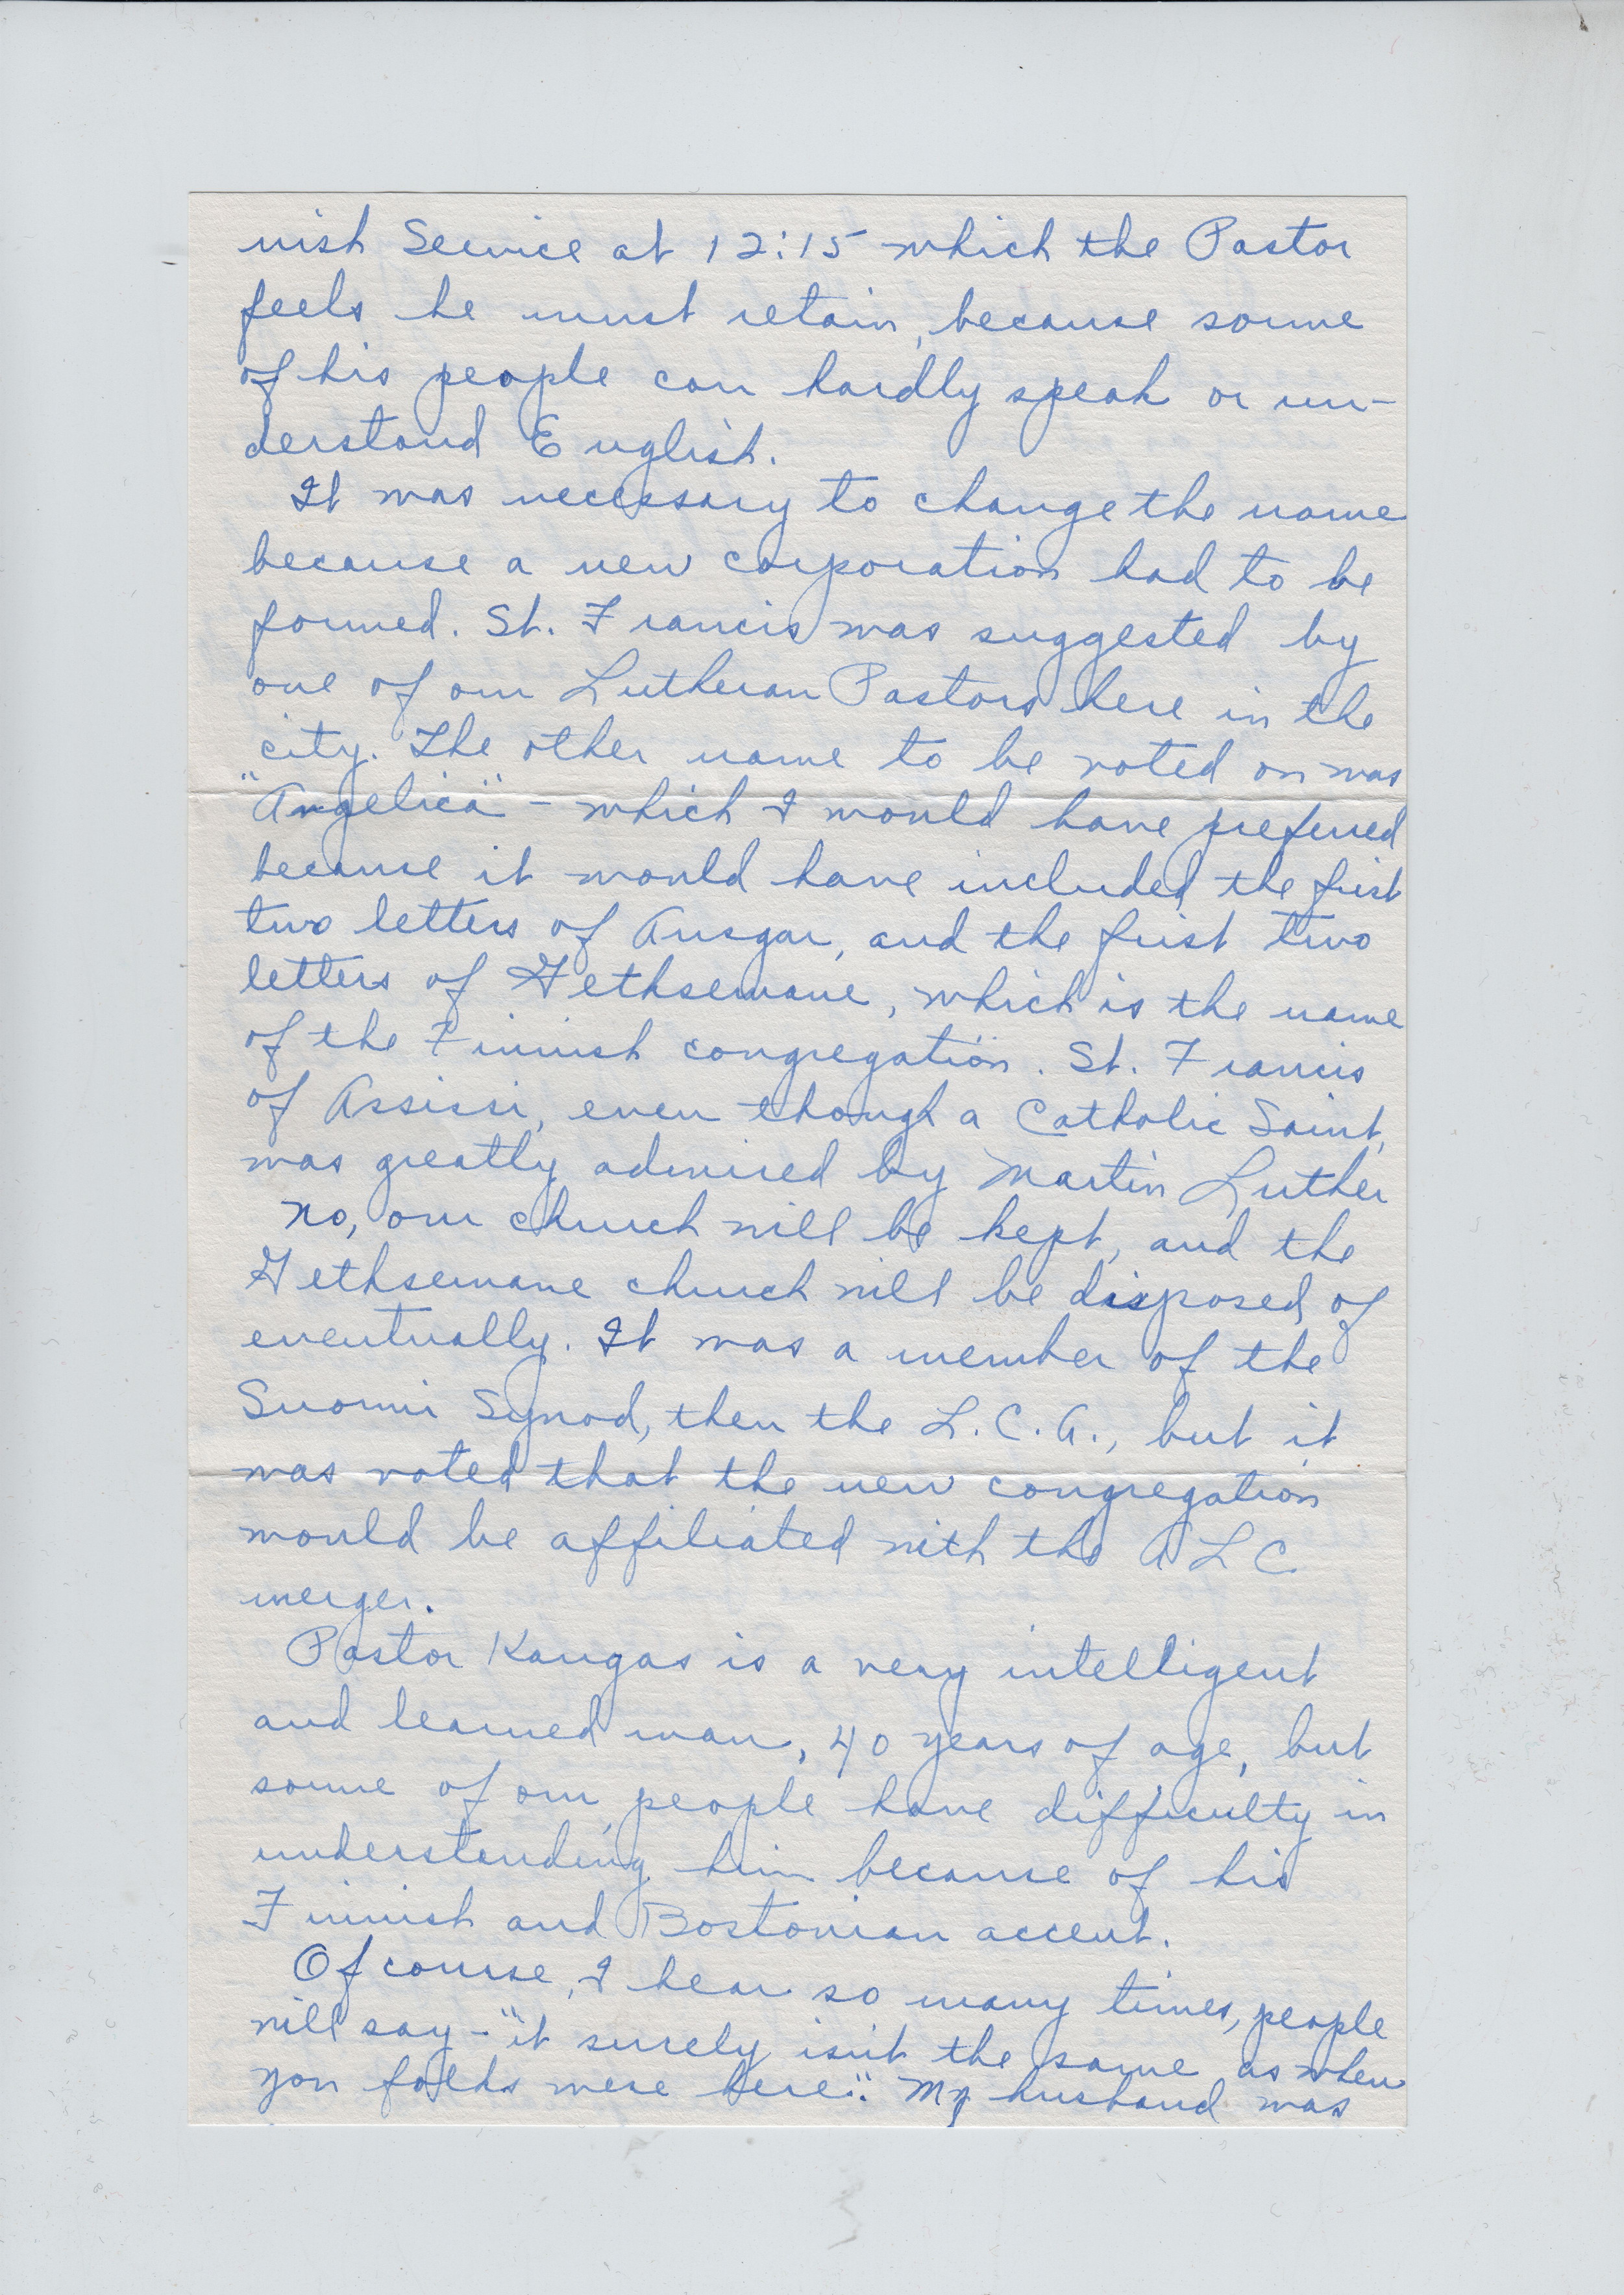 nish Service at 12:15 which the Pastor
feels he must retain, because some
of his people can hardly speak or un-
derstand English.
It was necessary to change the name
because a new corporation had to be
formed. St. Francis was suggested by
one of our Lutheran Pastors here in the
city. The other name to be voted on was
"Angelica" - which I would have preferred
because it would have included the first
two letters of Ansgar, and the first two
letters of Gethsemane, which is the name
of the Finnish congregation. St. Francis
of Assissi, even though a Catholic Saint,
was greatly admired by Martin Luther
No, our church will be kept, and the
Gethsemane church will be disposed of
eventually. It was a member of the
Suomi Synod, then the L.C.A., but it
was voted that the new congregation
would be affiliated with the ALC
merger.
Pastor Kangas is a very intelligent
and learned man, 40 years of age, but
some of our people have difficulty in
understanding him because of his
Finnish and Bostonian accent.
Of course, I hear so many times, people
will say - "it surely isn't the same as when
you folks were here." My husband was